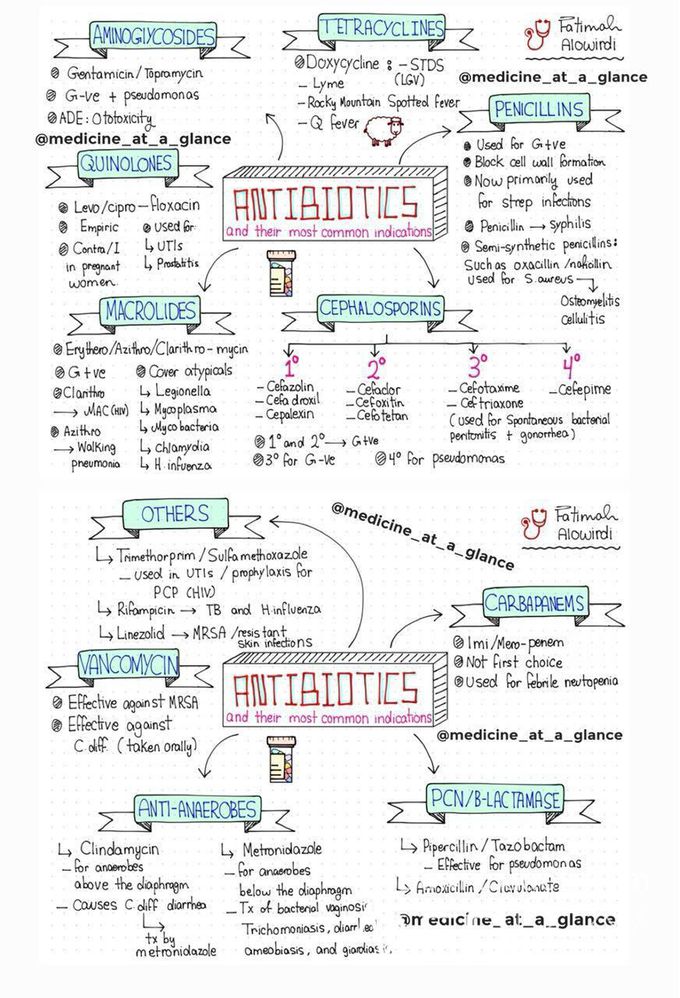 AMINOGLYCOSIDES
Gentamicin/Topramycin
G-ve + pseudomonas
ADE: Ototoxicity
@medicine_at_a_glance
TETRACYCLINES
Doxycycline : - STDS
(LGV)
- Lyme
- Rocky Mountain Spotted fever
- Q fever
Fatimah
Alowirdi
@medicine_at_a_glance
PENICILLINS
Used for G+ve
Block cell wall formation
Now primarily used
for strep infections
Penicillin → syphilis
Semi-synthetic penicillins:
Such as oxacillin /nafcillin
used for S.aureus
Osteomyelitis
cellulitis
QUINOLONES
Levo/cipro - floxacin
Empiric
Contra/I
in pregnant
women
used for
↳ UTIs
↳ Prostatitis
ANTIBIOTICS
and their most common indications
MACROLIDES
Erythero/Azithro/Clarithro-mycin
G+ve
Clarithro
→ MAC (HIV)
Azithro
→ Walking
pneumonia
Cover atypicals
↳ Legionella
↳ Mycoplasma
↳ Mycobacteria
↳ Chlamydia
↳ H.infuenza
CEPHALOSPORINS
1°
- Cefazolin
- Cefadroxil
- Cepalexin
2°
- Cefaclor
- Cefoxitin
- Cefotetan
3°
- Cefotaxime
- Ceftriaxone
(used for Spontaneous bacterial
peritonitis + gonorrhea)
4°
- Cefepime
1° and 2° → G+ve
3° for G-ve
4° for pseudomonas
OTHERS
↳ Trimethorprim /Sulfamethoxazole
- used in UTIs / prophylaxis for
PCP (HIV)
↳ Rifampicin → TB and H.influenza
↳ Linezolid → MRSA /resistant
skin infections
@medicine_at_a_glance
Fatimah
Alowirdi
CARBAPANEMS
Imi/Mero-penem
Not first choice
Used for febrile neutopenia
@medicine_at_a_glance
VANCOMYCIN
Effective against MRSA
Effective against
C.diff (taken orally)
ANTIBIOTICS
and their most common indications
ANTI-ANAEROBES
↳ Clindamycin
- for anaerobes
above the diaphragm
- Causes C.diff diarrhea
↳ tx by
metronidazole
↳ Metronidazole
- for anaerobes
below the diaphragm
- Tx of bacterial vaginosi
Trichomoniasis,
ameobiasis, and giardias
PCN/B-LACTAMASE
↳ Pipercillin / Tazobactam
- Effective for pseudomonas
↳ Amoxicillin / Clavulanate
@medicine_at_a_glance